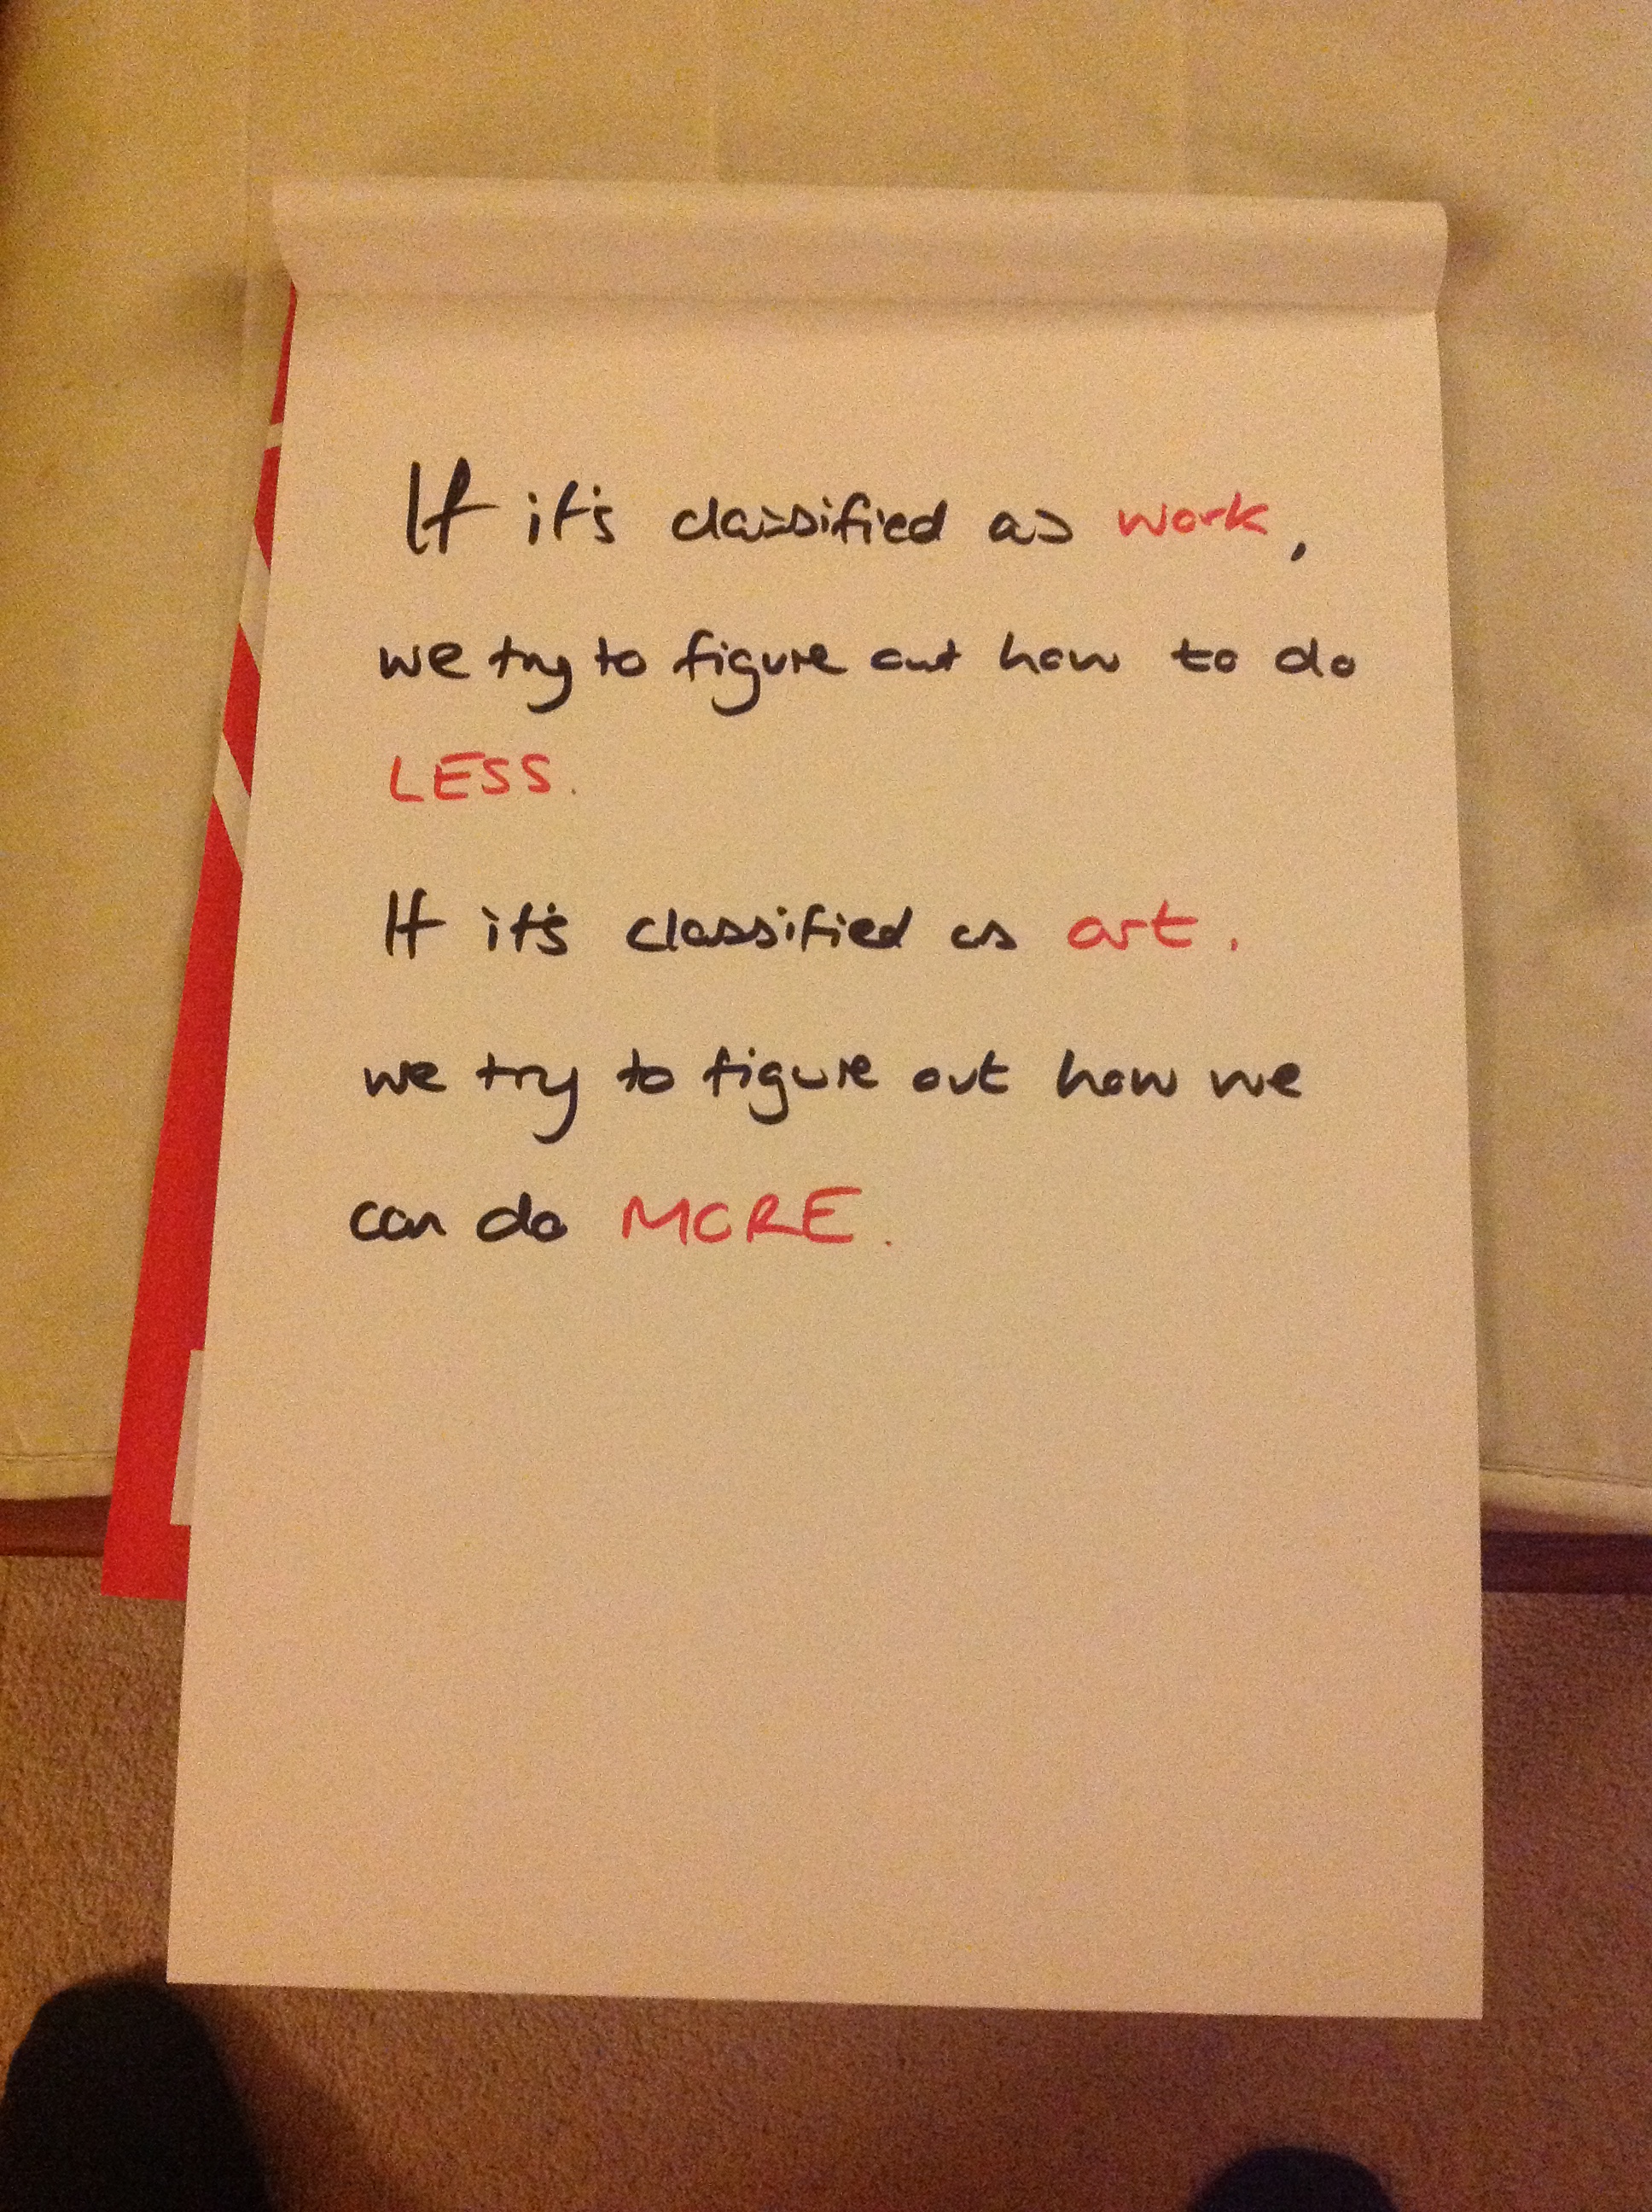 If it's classified as work,
we try to figure out how to do
LESS.
If it's classified as art.
we try to figure out how we
can do MORE.